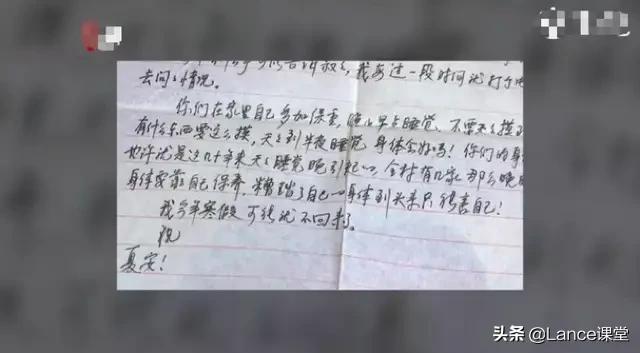 我要过一段时间
去问々情况。
你们在家里自己多加保重，晚上早点睡觉、不要天々摸
有什么东西要这么摸，天々到半夜睡觉 身体会好吗！你们的身
也许就是这几十年来天々睡觉晚引起的。全村有几家那么晚
身体要靠自己保养，糟踏了自己的身体到头来只 害自己！
我今年寒假可能就不回来了。
祝
夏安！
头条 @Lance课堂